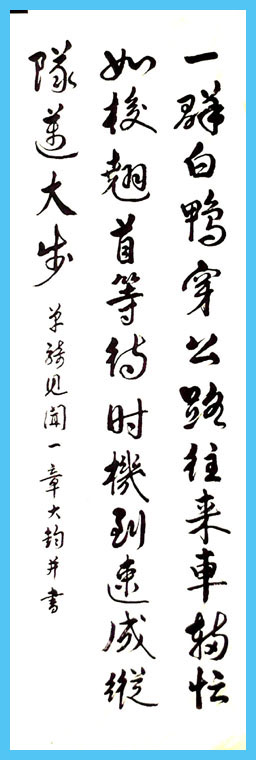 一群白鴨穿公路往来車輛忙
如梭翹首等待时機到速成縱
隊邁大步
单騎见聞一章大鈞并書